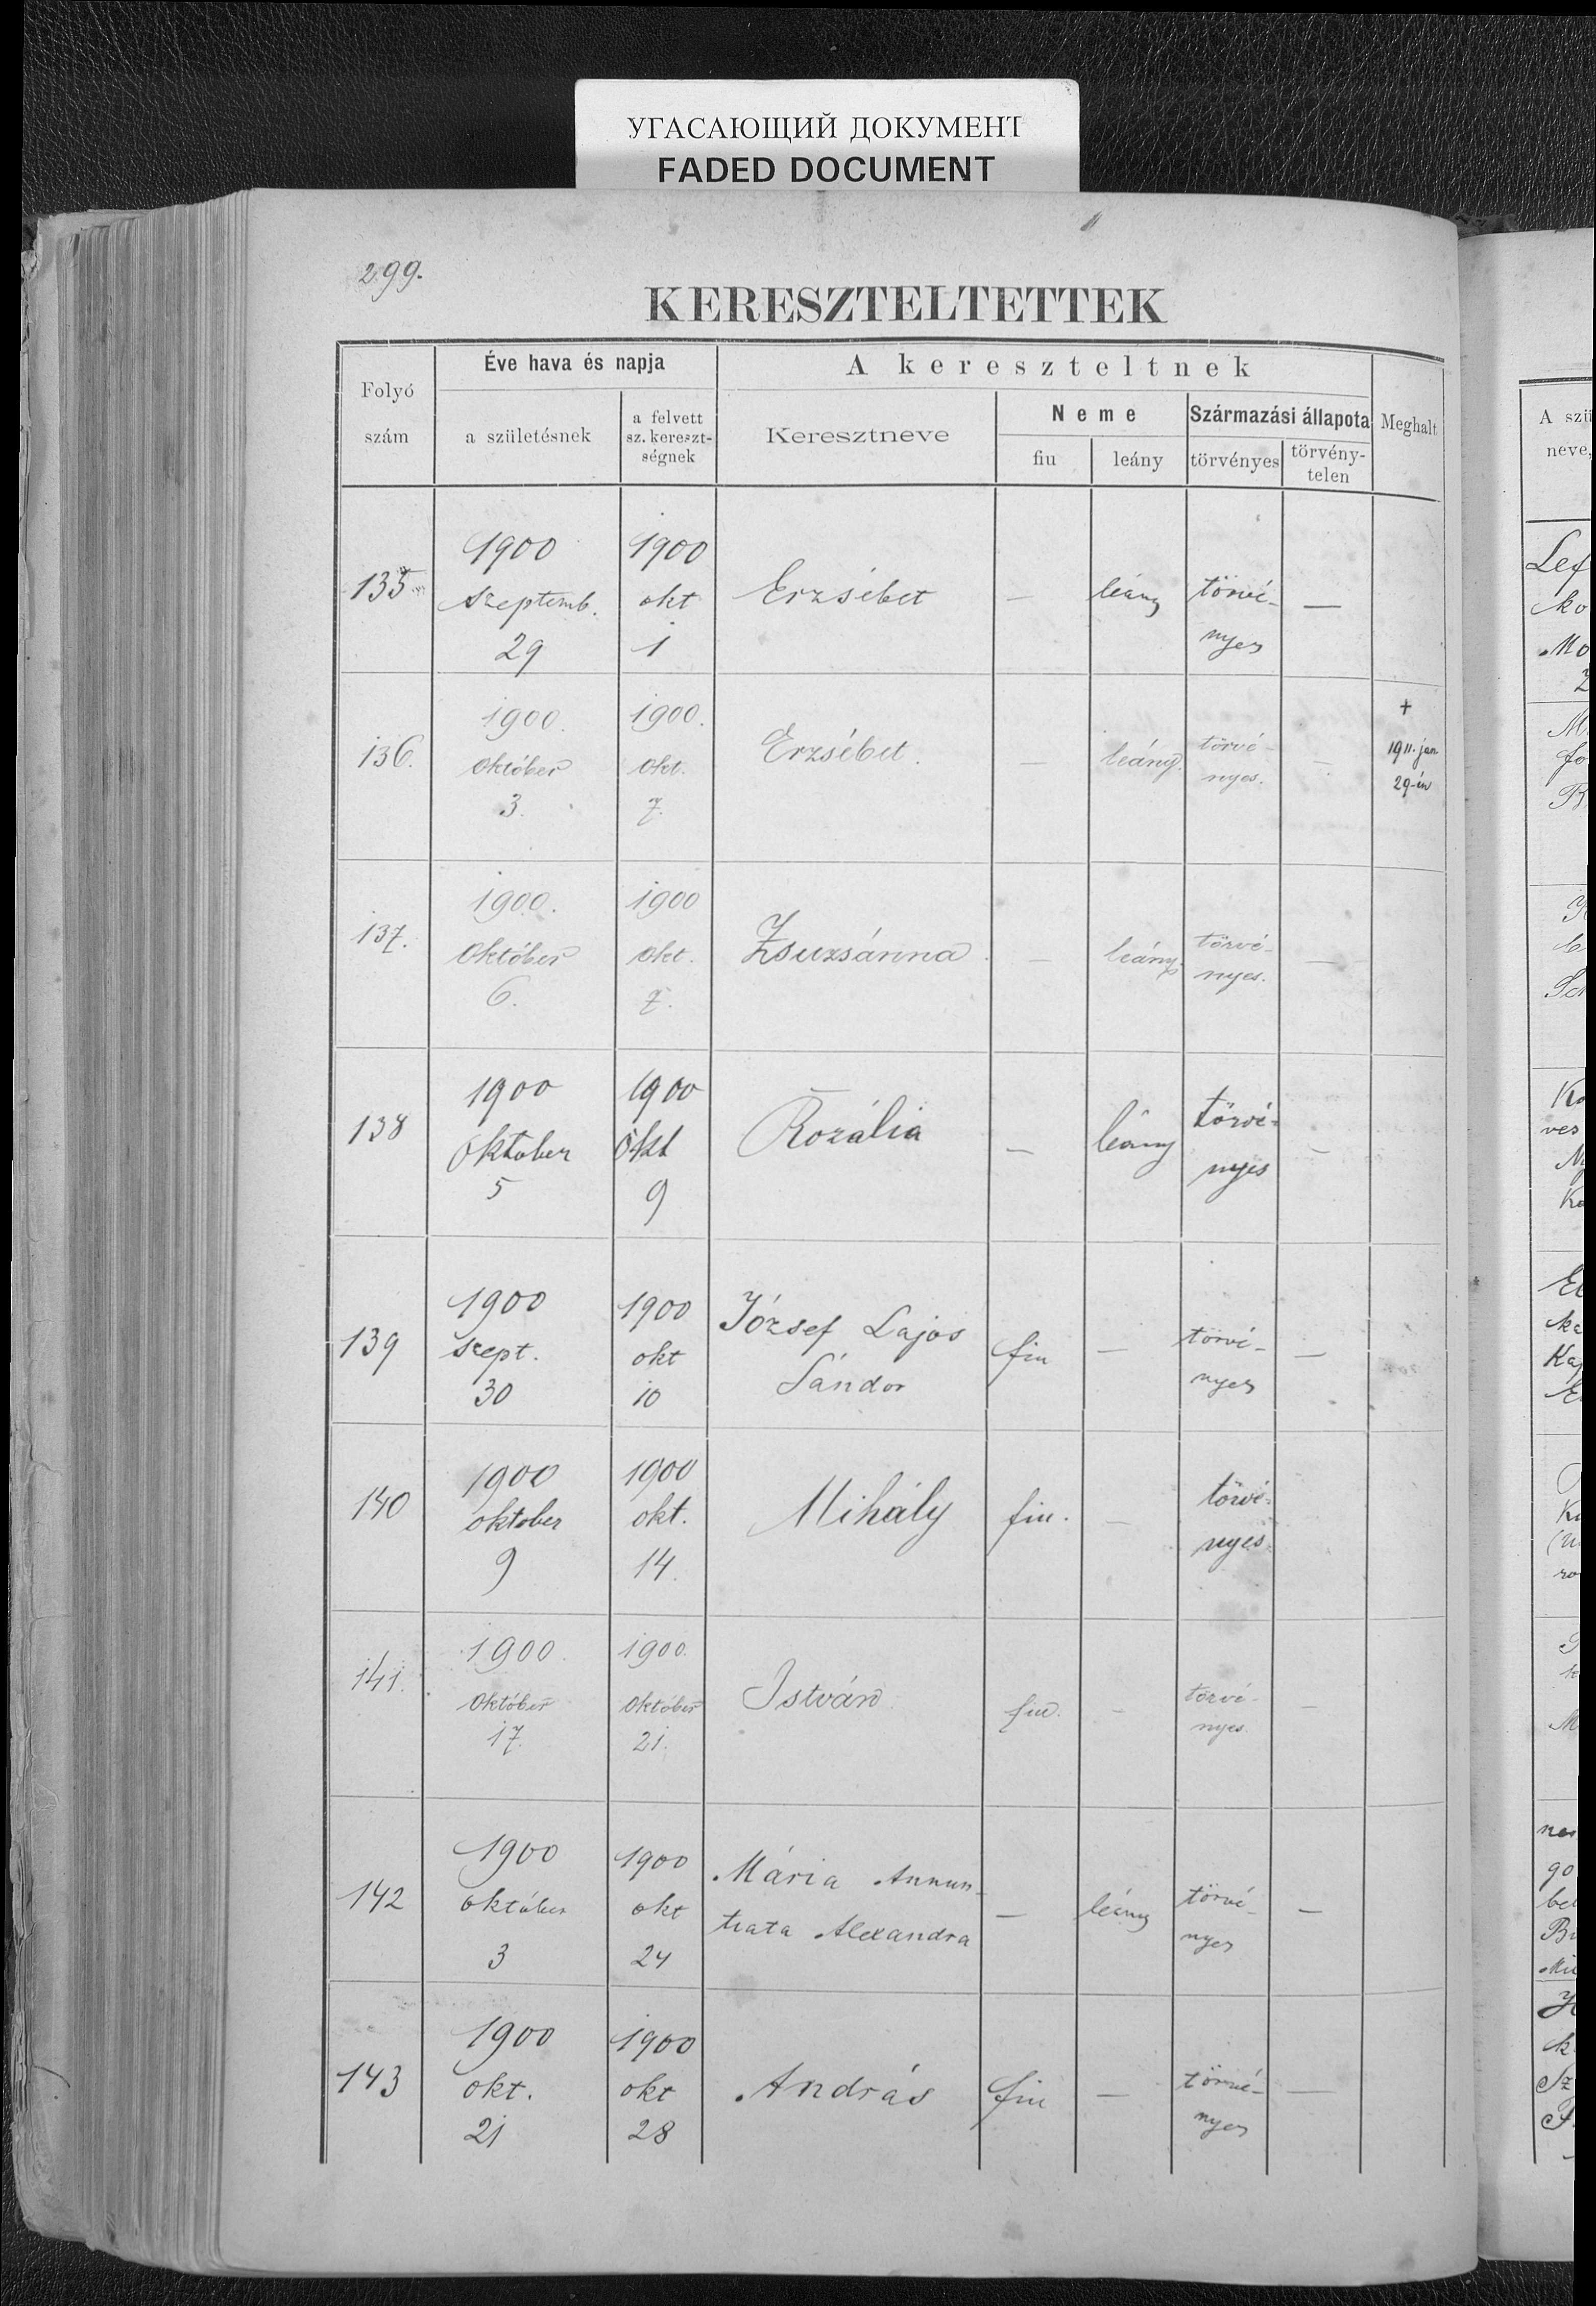 УГАСАЮЩИЙ ДОКУМЕНТ
FADED DOCUMENT
299.
KERESZTELTETTEK
Folyó szám
Éve hava és napja
a születésnek
a felvett sz. kereszt-ségnek
A kereszteltnek
Keresztneve
Neme
fiu
leány
Származási állapota
törvényes
törvény-telen
Meghalt
135 1900 1900 Erzsébet — leány törvé- —
szeptemb. okt nyes
29 1
136. 1900. 1900. Erzsébet. — leány. törvé- — +
október okt. nyes. 1911. jan.
3. 7. 29-én
137. 1900. 1900 Zsuzsánna. — leány. törvé- —
október okt. nyes.
6. 7.
138 1900 1900 Rozália — leány törvé- —
Oktober Okt nyes
5 9
139 1900 1900 József Lajos fiu — törvé- —
szept. okt Sándor nyes
30 10
140 1900 1900 Mihály fiu. — törvé-
oktober okt. nyes
9 14.
141. 1900. 1900. István fiu. - törvé- —
október október nyes.
17. 21.
142 1900 1900 Mária Annun- — leány törvé- —
október okt tiata Alexandra nyes
3 24
143 1900 1900 András fiu — törvé- —
okt. okt nyes
21 28
A szü
neve,
Lef
ko
Mo